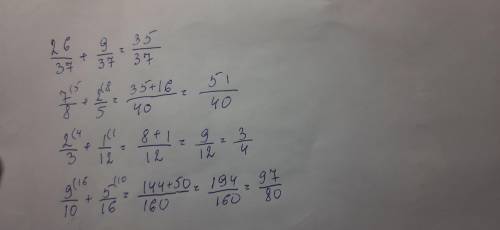 26/37 + 9/37 = 35/37
7(5/8 + 2(8/5 = 35+16/40 = 51/40
2(4/3 + 1(1/12 = 8+1/12 = 9/12 = 3/4
9(16/10 + 5(10/16 = 144+50/160 = 194/160 = 97/80